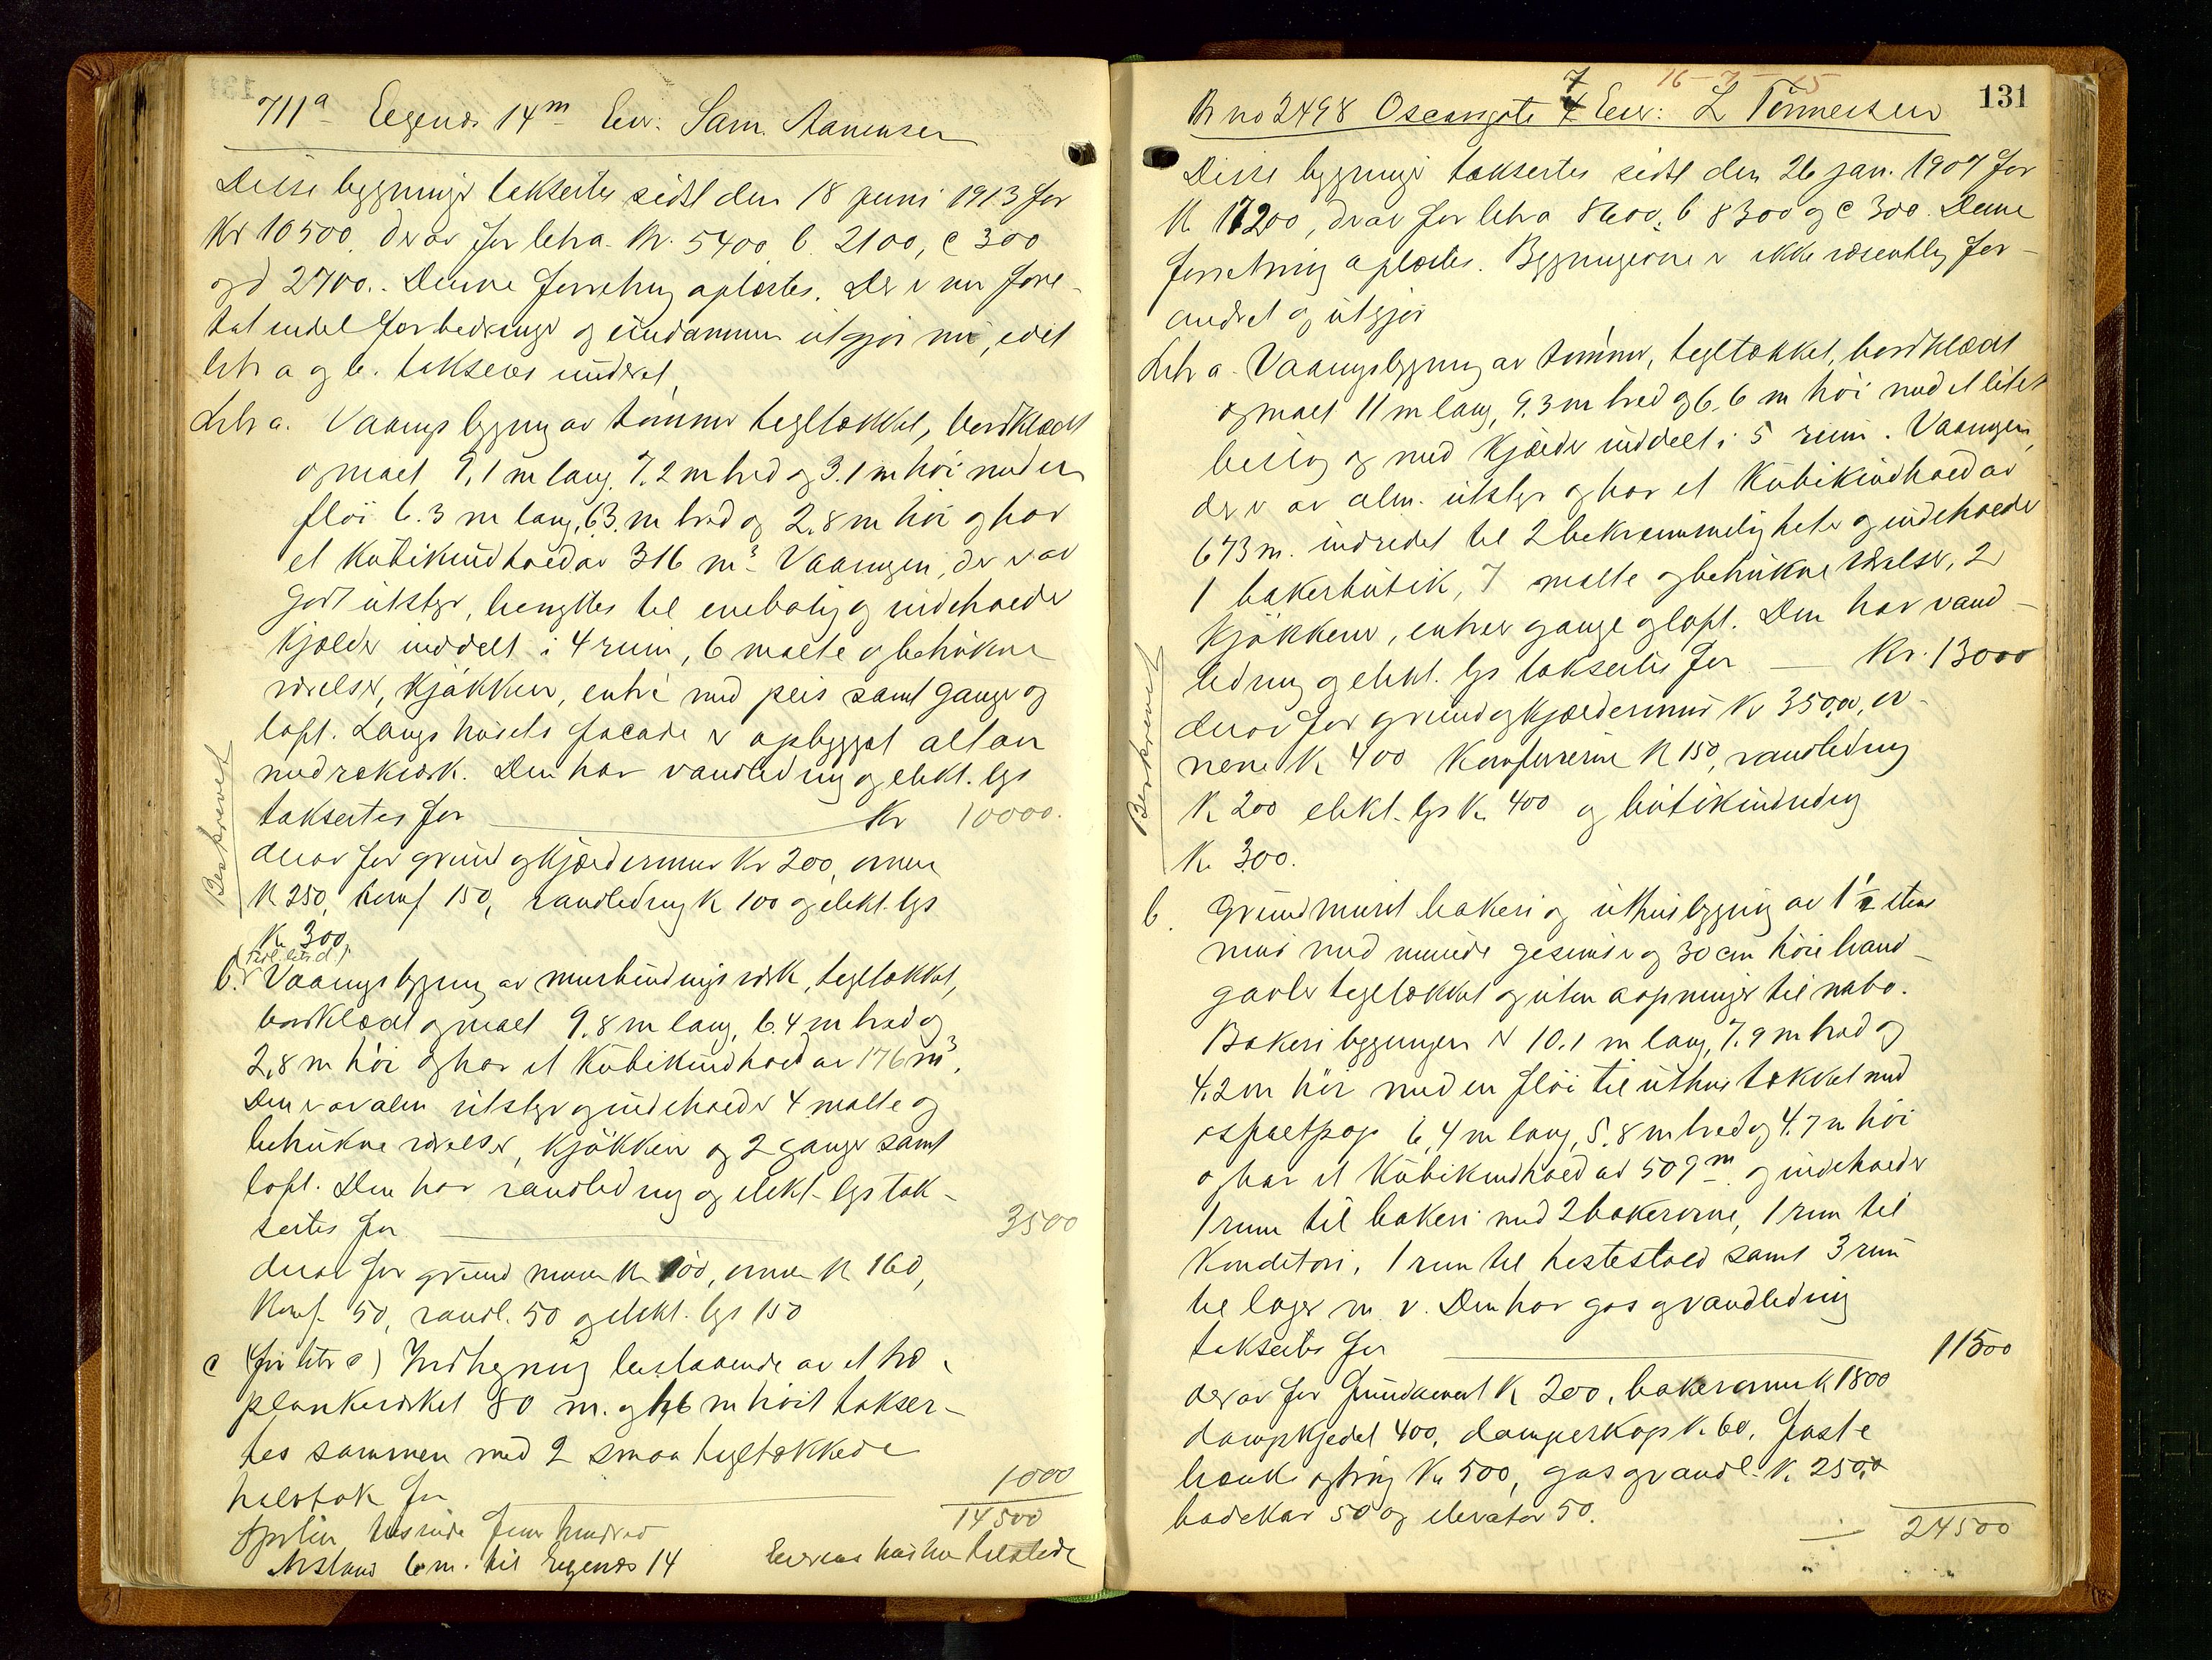 711a Eegenæs 14m Eier: Sam. Aanensen
Disse bygninger taksertes sidst den 18 juni 1913 for
Kr 10500, derav for litra. Kr. 5400 b. 2100, c 300
og d 2700.. Denne forretning oplæstes. Der er nu fore-
tat endel forbedringer og eiendommen utgjør nu, idet
litr a og b. takseres under et,
Litr a. Vaaningsbygning av tømmer tegltækket, bordklædt
og maalt 9,1 m lang, 7.2 m bred og 3.1 m høi med en
fløi 6.3 m lang, 6,3 m bred og 2,8 m høi og har
et Kubikindhold av 316 m³. Vaaningen, der er av
godt utstyr, benyttes til enebolig og indeholder
kjælder inddelt i 4 rum, 6 malte og betrukne
værelser, kjøkken, entré med peis samt gange og
loft. Langs husets facade er opbygget altan
med rekværk. Den har vandledning og elekt. lys
taksertes for Kr 10000.
derav for grund og kjældermur Kr 200, ovner
K 250, komf 150, vandledning K 100 og elekt. lys
Kr 300.
(før litr d)
b. Vaaningsbygning av murbindingsverk, tegltækket,
bordklædt og maalt 9.8 m lang, 6.4 m bred og
2,8 m høi og har et Kubikindhold av 176 m³.
Den er av alm utstyr og indeholder 4 malte og
betrukne værelser, kjøkken og 2 gange samt
loft. Den har vandledning og elekt. lys tak-
sertes for 3500
derav for grundmuren K 100, ovner K 160,
Komf. 50, vandl. 50 og elekt. lys 150
c (før litr c) Indhegning bestaaende av et
plankeverket 80 m. og 1,6 m høit takser-
tes sammen med 2 smaa tegltækkede
halvtak for 1000
14500
Fjorten tusinde fem hundred
Avstand 6 m. til Eegenæs 14 Eieren var tilstede
Beskrevet
16-7-15
Br no 2498 Oscarsgate 7 Eier: L Tønnessen 131
Disse bygninger taksertes sidst den 26 jan. 1907 for
K 17200, derav for litra 8600, b 8300 og c 300. Denne
forretning oplæstes. Bygningerne er ikke væsentlig for-
andret og utgjør
Litr a. Vaaningsbygning av tømmer, tegltækket, bordklædt
og maalt 11 m lang, 9,3 m bred og 6,6 m høi med et litet
bislag og med kjælder inddelt i 5 rum. Vaaningen,
der er av alm. utstyr og har et Kubikindhold av
673 m. indredet til 2 bekvemmeligheter og indeholder
1 bakerbutik, 7 malte og betrukne værelser, 2
kjøkkener, entreer gange og loft. Den har vand-
ledning og elekt. lys taksertes for Kr. 13000
derav for grund og kjældermur Kr 350,00, ov-
nene K 400 Komfurerne K 150, vandledning
K 200 elekt. lys K 400 og butikindredning
K. 300.
Beskrevet
b Grundmuret bakeri og uthusbygning av 1½ stens
mur med murede gesimser og 30 cm høie brand-
gavler tegltækket og uten aapninger til nabo.
Bakeribygningen er 10.1 m lang, 7.9 m bred og
4.2 m høi med en fløi til uthus tækket med
asfaltpap 6,4 m lang, 5.8 m bred og 4.7 m høi
og har et Kubikindhold av 509 m. og indeholder
1 rum til bakeri med 2 bakerovne, 1 rum til
Konditori, 1 rum til hestestald samt 3 rum
til lager m. v. Den har gas og vandledning
taksertes for 11500
derav for fundament K 200, bakerovner K 1800
dampkjedel 400, damperskap K 60, faste
bænke og trug Kr 500, gas og vandl. K. 250,00
badekar 50 og elevator 50.
24500